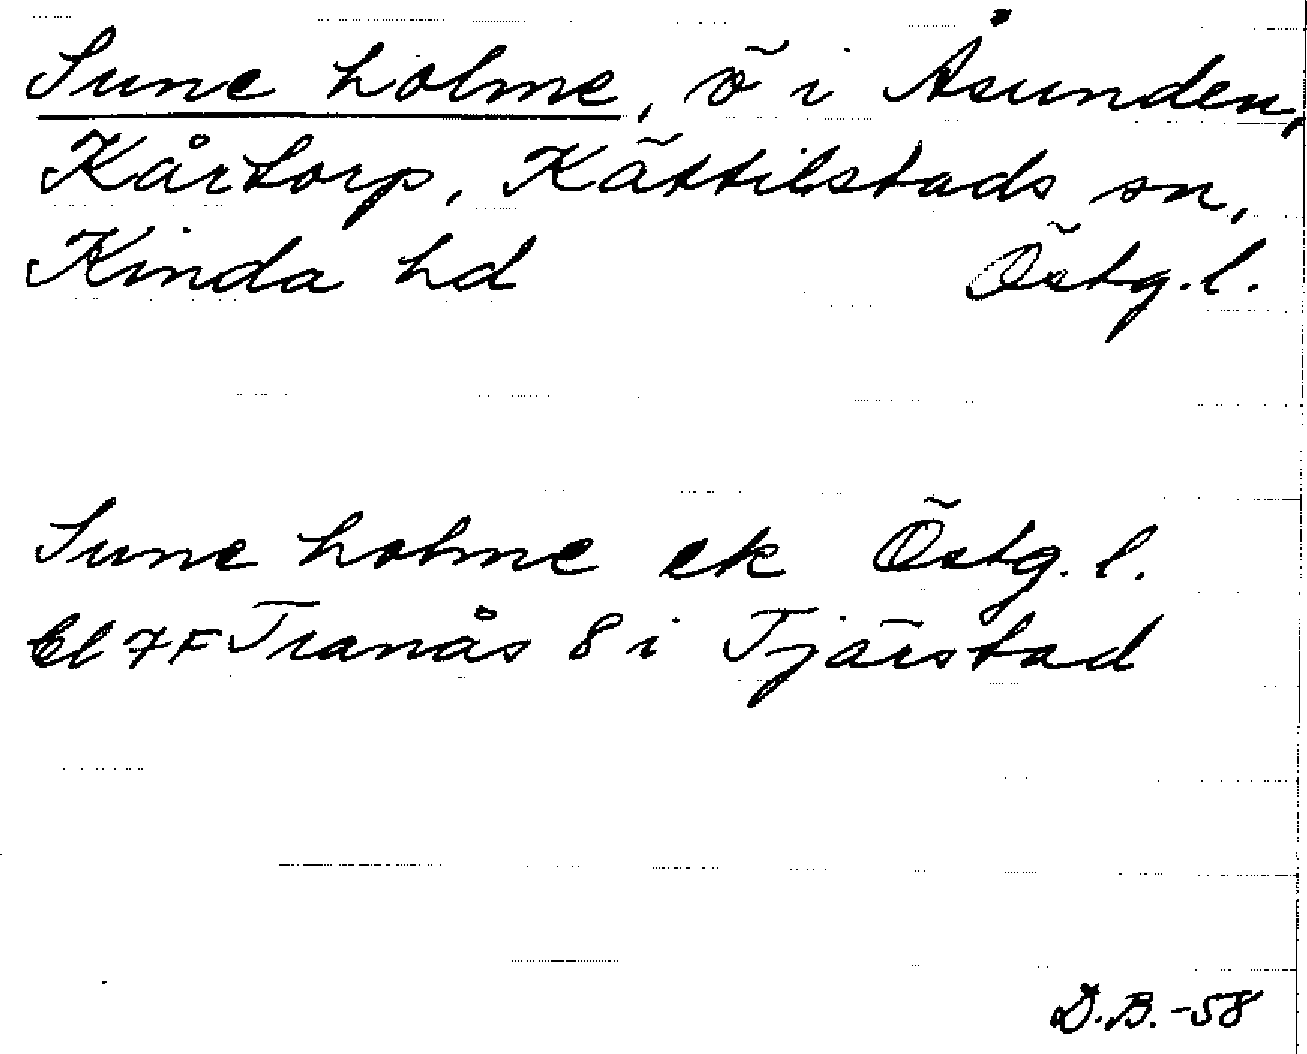 Sune holme, ö i Åsunden,
Kårtorp, Kättilstads sn,
Kinda hd Östg.l.
Sune holme ek Östg.l.
bl 7F Tranås 8 i Tjärstad
D.B.-58